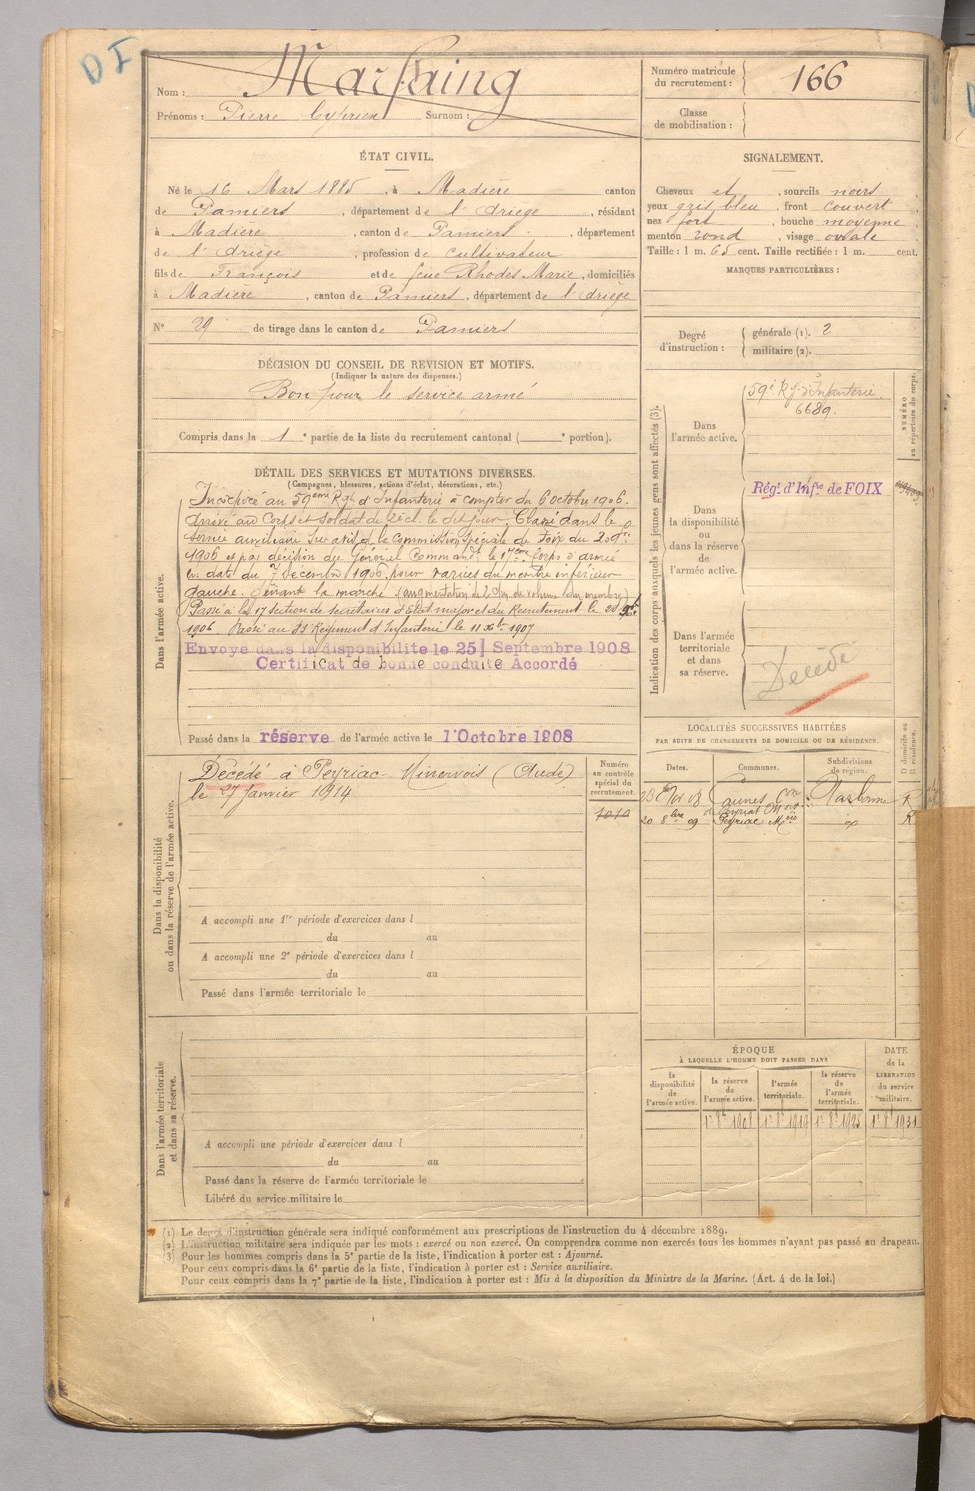 D I
Nom : Marfaing
Prénoms : Pierre Cyprien Surnom :
Numéro matricule du recrutement : 166
Classe de mobilisation :
ÉTAT CIVIL.
Né le 16 Mars 1885, à Madière canton
de Pamiers, département de l'Ariège, résidant
à Madière, canton de Pamiers, département
de l'Ariège, profession de cultivateur
fils de François et de feue Rhodes Marie, domiciliés
à Madière, canton de Pamiers, département de l'Ariège
N° 29 de tirage dans le canton de Pamiers
SIGNALEMENT.
Cheveux et, sourcils noirs
yeux gris bleu, front couvert
nez fort, bouche moyenne
menton rond, visage ovale
Taille : 1 m. 65 cent. Taille rectifiée : 1 m. cent.
MARQUES PARTICULIÈRES :
Degré d'instruction : générale (1). 2
militaire (2).
DÉCISION DU CONSEIL DE REVISION ET MOTIFS.
(Indiquer la nature des dispenses.)
Bon pour le service armé
Compris dans la 1e partie de la liste du recrutement cantonal ( e portion).
DÉTAIL DES SERVICES ET MUTATIONS DIVERSES.
(Campagnes, blessures, actions d'éclat, décorations, etc.)
Dans l'armée active.
Incorporé au 59ème Rgt d'Infanterie à compter du 6 octobre 1906.
Arrivé au Corps et soldat de 2e cl. le dit jour. Classé dans le
service auxiliaire sur avis de la Commission spéciale de Foix du 20
1906 et par décision du Général Commandt le 17ème Corps d'armée
en date du 7 Décembre 1906 pour varices du membre inférieur
gauche. Gênant la marche (augmentation de 2 c/m du volume du membre)
Passé à la 17 section de secrétaires d'Etat major et du Recrutement le 20 Xbre
1906. Passé au Régiment d'Infanterie le 11 Xbre 1907
Envoyé dans la disponibilité le 25 Septembre 1908
Certificat de bonne conduite Accordé
Passé dans la réserve de l'armée active le 1 Octobre 1908
Indication des corps auxquels les jeunes gens sont affectés (3).
NUMÉRO au répertoire du corps.
Dans l'armée active.
59e Rgt d'Infanterie.
6689.
Dans la disponibilité ou dans la réserve de l'armée active.
Régt d'Infie de FOIX
Dans l'armée territoriale et dans sa réserve.
Décédé
Dans la disponibilité ou dans la réserve de l'armée active.
Décédé à Peyriac-Minervois (Aude)
le 27 janvier 1914
Numéro au contrôle spécial du recrutement.
1010
A accompli une 1re période d'exercices dans l
du au
A accompli une 2e période d'exercices dans l
du au
Passé dans l'armée territoriale le
LOCALITÉS SUCCESSIVES HABITÉES
PAR SUITE DE CHANGEMENTS DE DOMICILE OU DE RÉSIDENCE.
D domicile ou R résidence.
Dates. Communes. Subdivisions de région.
08 Caunes Narbonne R
20 8bre 09 Peyriac R
Dans l'armée territoriale et dans sa réserve.
A accompli une période d'exercices dans l
du au
Passé dans la réserve de l'armée territoriale le
Libéré du service militaire le
ÉPOQUE
À LAQUELLE L'HOMME DOIT PASSER DANS
DATE de la LIBÉRATION du service militaire.
la disponibilité de l'armée active. la réserve de l'armée active. l'armée territoriale. la réserve de l'armée territoriale.
1r 8bre 1908 1r 8bre 1919 1r 8bre 1925 1r 8bre 1931
(1) Le degré d'instruction générale sera indiqué conformément aux prescriptions de l'instruction du 4 décembre 1889.
(2) L'instruction militaire sera indiquée par les mots : exercé ou non exercé. On comprendra comme non exercés tous les hommes n'ayant pas passé au drapeau.
(3) Pour les hommes compris dans la 5e partie de la liste, l'indication à porter est : Ajourné.
Pour ceux compris dans la 6e partie de la liste, l'indication à porter est : Service auxiliaire.
Pour ceux compris dans la 7e partie de la liste, l'indication à porter est : Mis à la disposition du Ministre de la Marine. (Art. 4 de la loi.)